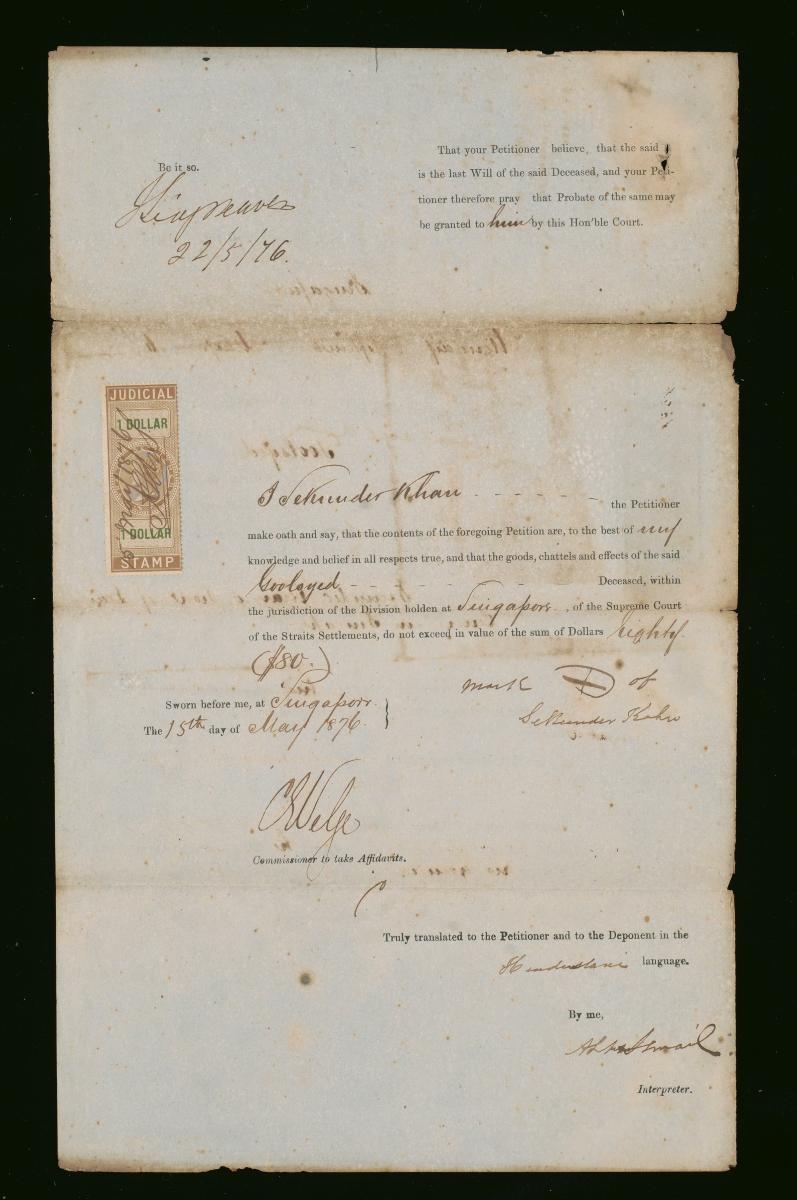 Be it so.
22/5/76.
That your Petitioner believe, that the said
is the last Will of the said Deceased, and your Peti-
tioner therefore pray that Probate of the same may
be granted to him by this Hon'ble Court.
JUDICIAL
1 DOLLAR
May 1876
1 DOLLAR
STAMP
I Sekunder Khan - - - - - - the Petitioner
make oath and say, that the contents of the foregoing Petition are, to the best of my
knowledge and belief in all respects true, and that the goods, chattels and effects of the said
Goolayed - - - - - - Deceased, within
the jurisdiction of the Division holden at Singapore, of the Supreme Court
of the Straits Settlements, do not exceed in value of the sum of Dollars Eighty
($80.)
mark D of
Sekunder Kahn
Sworn before me, at Singapore.
The 15th day of May 1876.
Commissioner to take Affidavits.
Truly translated to the Petitioner and to the Deponent in the
Hindustani language.
By me,
Ismail
Interpreter.